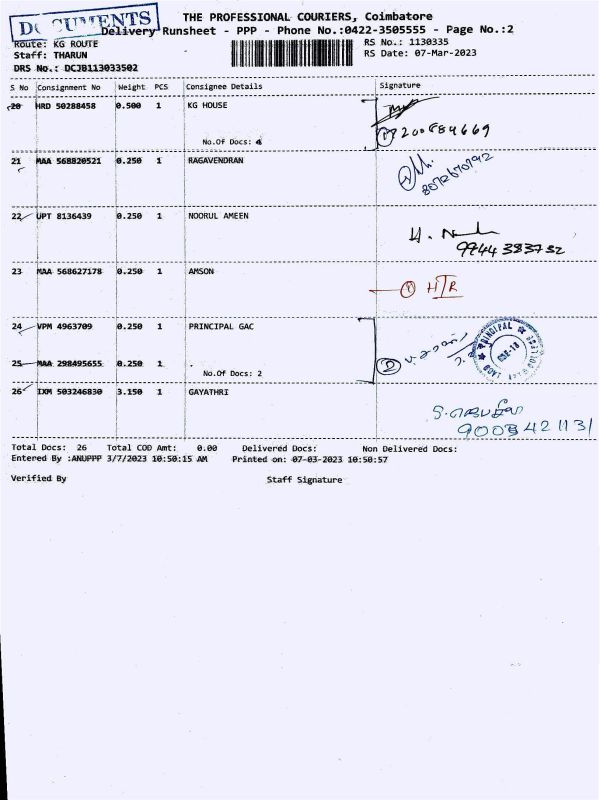 DOCUMENTS
THE PROFESSIONAL COURIERS, Coimbatore
Delivery Runsheet - PPP - Phone No.:0422-3505555 - Page No.:2
Route: KG ROUTE
RS No.: 1130335
Staff: THARUN
RS Date: 07-Mar-2023
DRS No.: DCJB113033502
S No Consignment No Weight PCS Consignee Details Signature
20 HRD 50288458 0.500 1 KG HOUSE
No.Of Docs: 4
21 MAA 568820521 0.250 1 RAGAVENDRAN
22 UPT 8136439 0.250 1 NOORUL AMEEN
9944383732
23 MAA 568627178 0.250 1 AMSON
24 VPM 4963709 0.250 1 PRINCIPAL GAC
PRINCIPAL
25 MAA 298495655 0.250 1
No.Of Docs: 2
2
26 IXM 503246830 3.150 1 GAYATHRI
9003421131
Total Docs: 26 Total COD Amt: 0.00 Delivered Docs: Non Delivered Docs:
Entered By :ANUPPP 3/7/2023 10:50:15 AM Printed on: 07-03-2023 10:50:57
Verified By Staff Signature